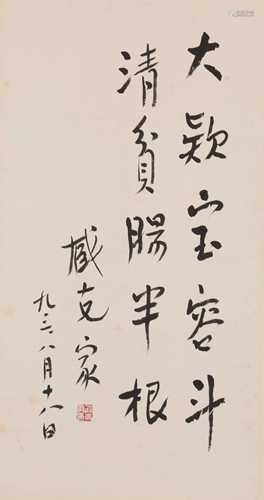 大欵宝容斗
清貧腸半根
臧克家
九三八月十八日